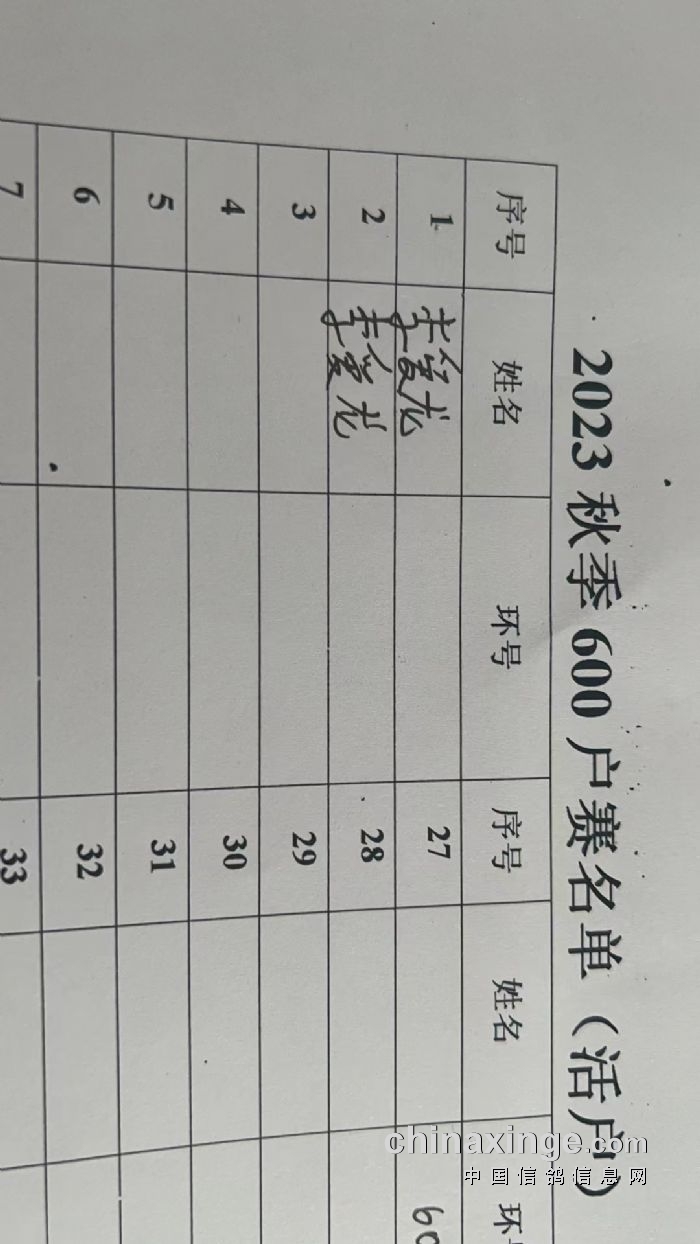 2023 秋季 600 户赛名单（活户）
序号 姓名 环号 序号 姓名 环号
1 李爱龙 27 60
2 李爱龙 28
3 29
4 30
5 31
6 32
7 33
chinaxinge.com
中国信鸽信息网